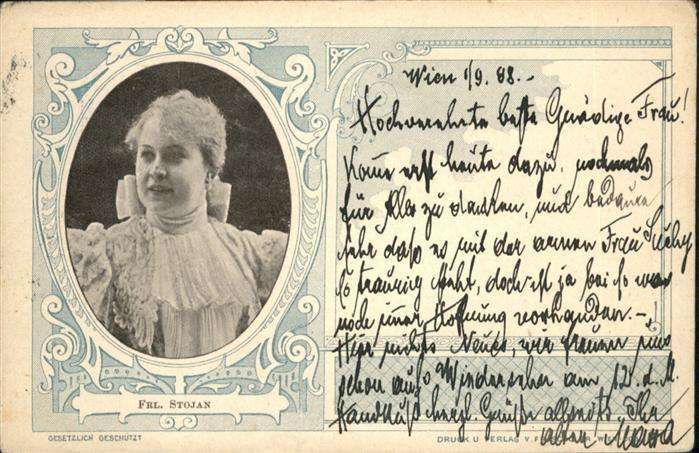 Wien 1/9. 98.-
Hochverehrte beste Gnädige Frau!
Komme erst heute dazu, nochmals
für Alles zu danken, und bedaure
sehr daß es mit der armen Frau
so traurig steht, doch ist ja bei so was
noch immer Hoffnung vorhanden.-
Hier nichts Neues, wir freuen uns
schon aufs Wiedersehen am 12. d. M.
Handkuß herzl. Grüße allseits. Ihr
alter
FRL. STOJAN
GESETZLICH GESCHÜTZT
DRUCK U. VERLAG V.